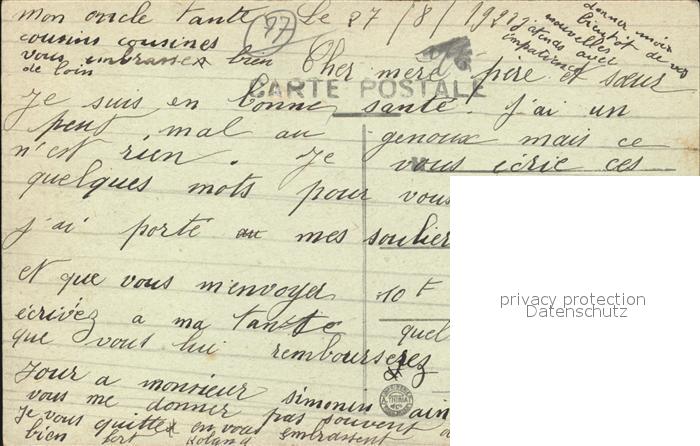 mon oncle tante
cousins cousines
vous embrasser bien
de loin
27
Le 27/8/1922
donner moi
bientôt de vos
nouvelles
j'étends avec
impatience
Cher mere père et sœur
CARTE POSTALE
Je suis en bonne santé. J'ai un
peut mal au genoux mais ce
n'est rien. Je vous écrie ces
quelques mots pour vous
j'ai porté au mes soulier
et que vous m'envoyer 10 f
écrivez a ma tante quel
que vous lui rembourserez
Jour a monsieur simonin ain
vous me donner pas souvent
je vous quitter en vous
bien fort Roland Embrassent
privacy protection
Datenschutz